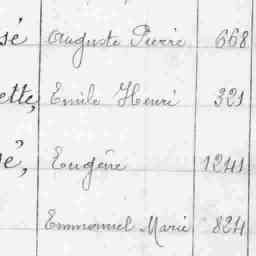 sé Auguste Pierre 668
ette, Emile Henri 321
é, Eugène 1241
Emmanuel Marie 824